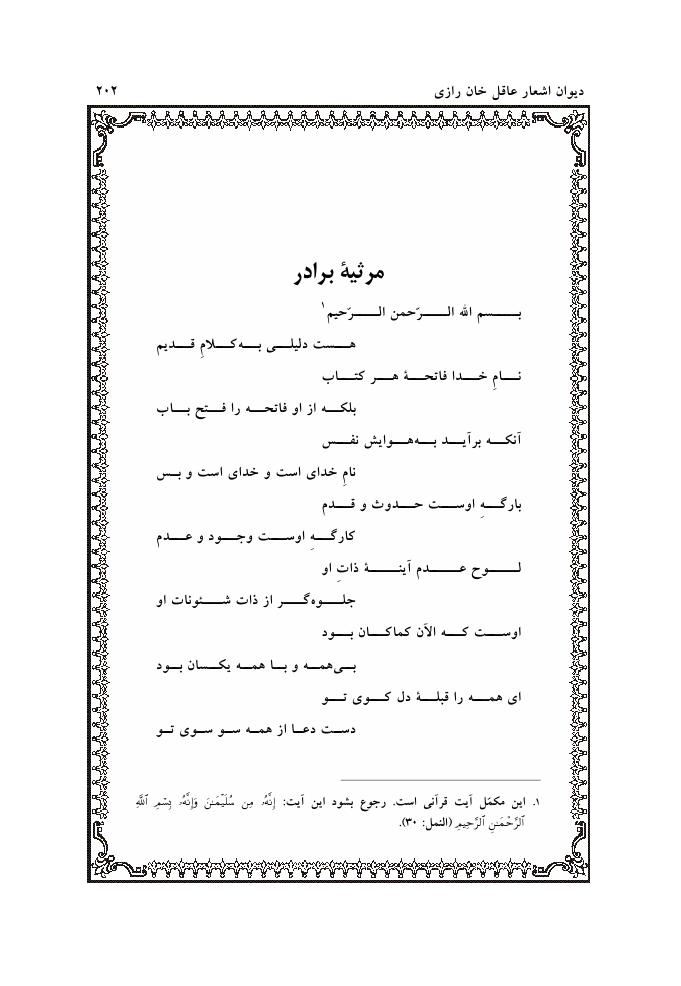 دیوان اشعار عاقل خان رازی ۲۰۲
مرثیهٔ برادر
بسم الله الرّحمن الرّحیم۱
هست دلیلی به‌کلامِ قدیم
نامِ خدا فاتحهٔ هر کتاب
بلکه از او فاتحه را فتح باب
آنکه برآید به‌هوایش نفس
نامِ خدای است و خدای است و بس
بارگهِ اوست حدوث و قدم
کارگهِ اوست وجود و عدم
لوح عدم آینهٔ ذاتِ او
جلوه‌گر از ذات شئونات او
اوست که الآن کماکان بود
بی‌همه و با همه یکسان بود
ای همه را قبلهٔ دل کوی تو
دست دعا از همه سو سوی تو
۱. این مکمّل آیت قرآنی است. رجوع بشود این آیت: إِنَّهُۥ مِن سُلَيۡمَٰنَ وَإِنَّهُۥ بِسۡمِ ٱللَّهِ
ٱلرَّحۡمَٰنِ ٱلرَّحِيمِ (النمل: ۳۰).